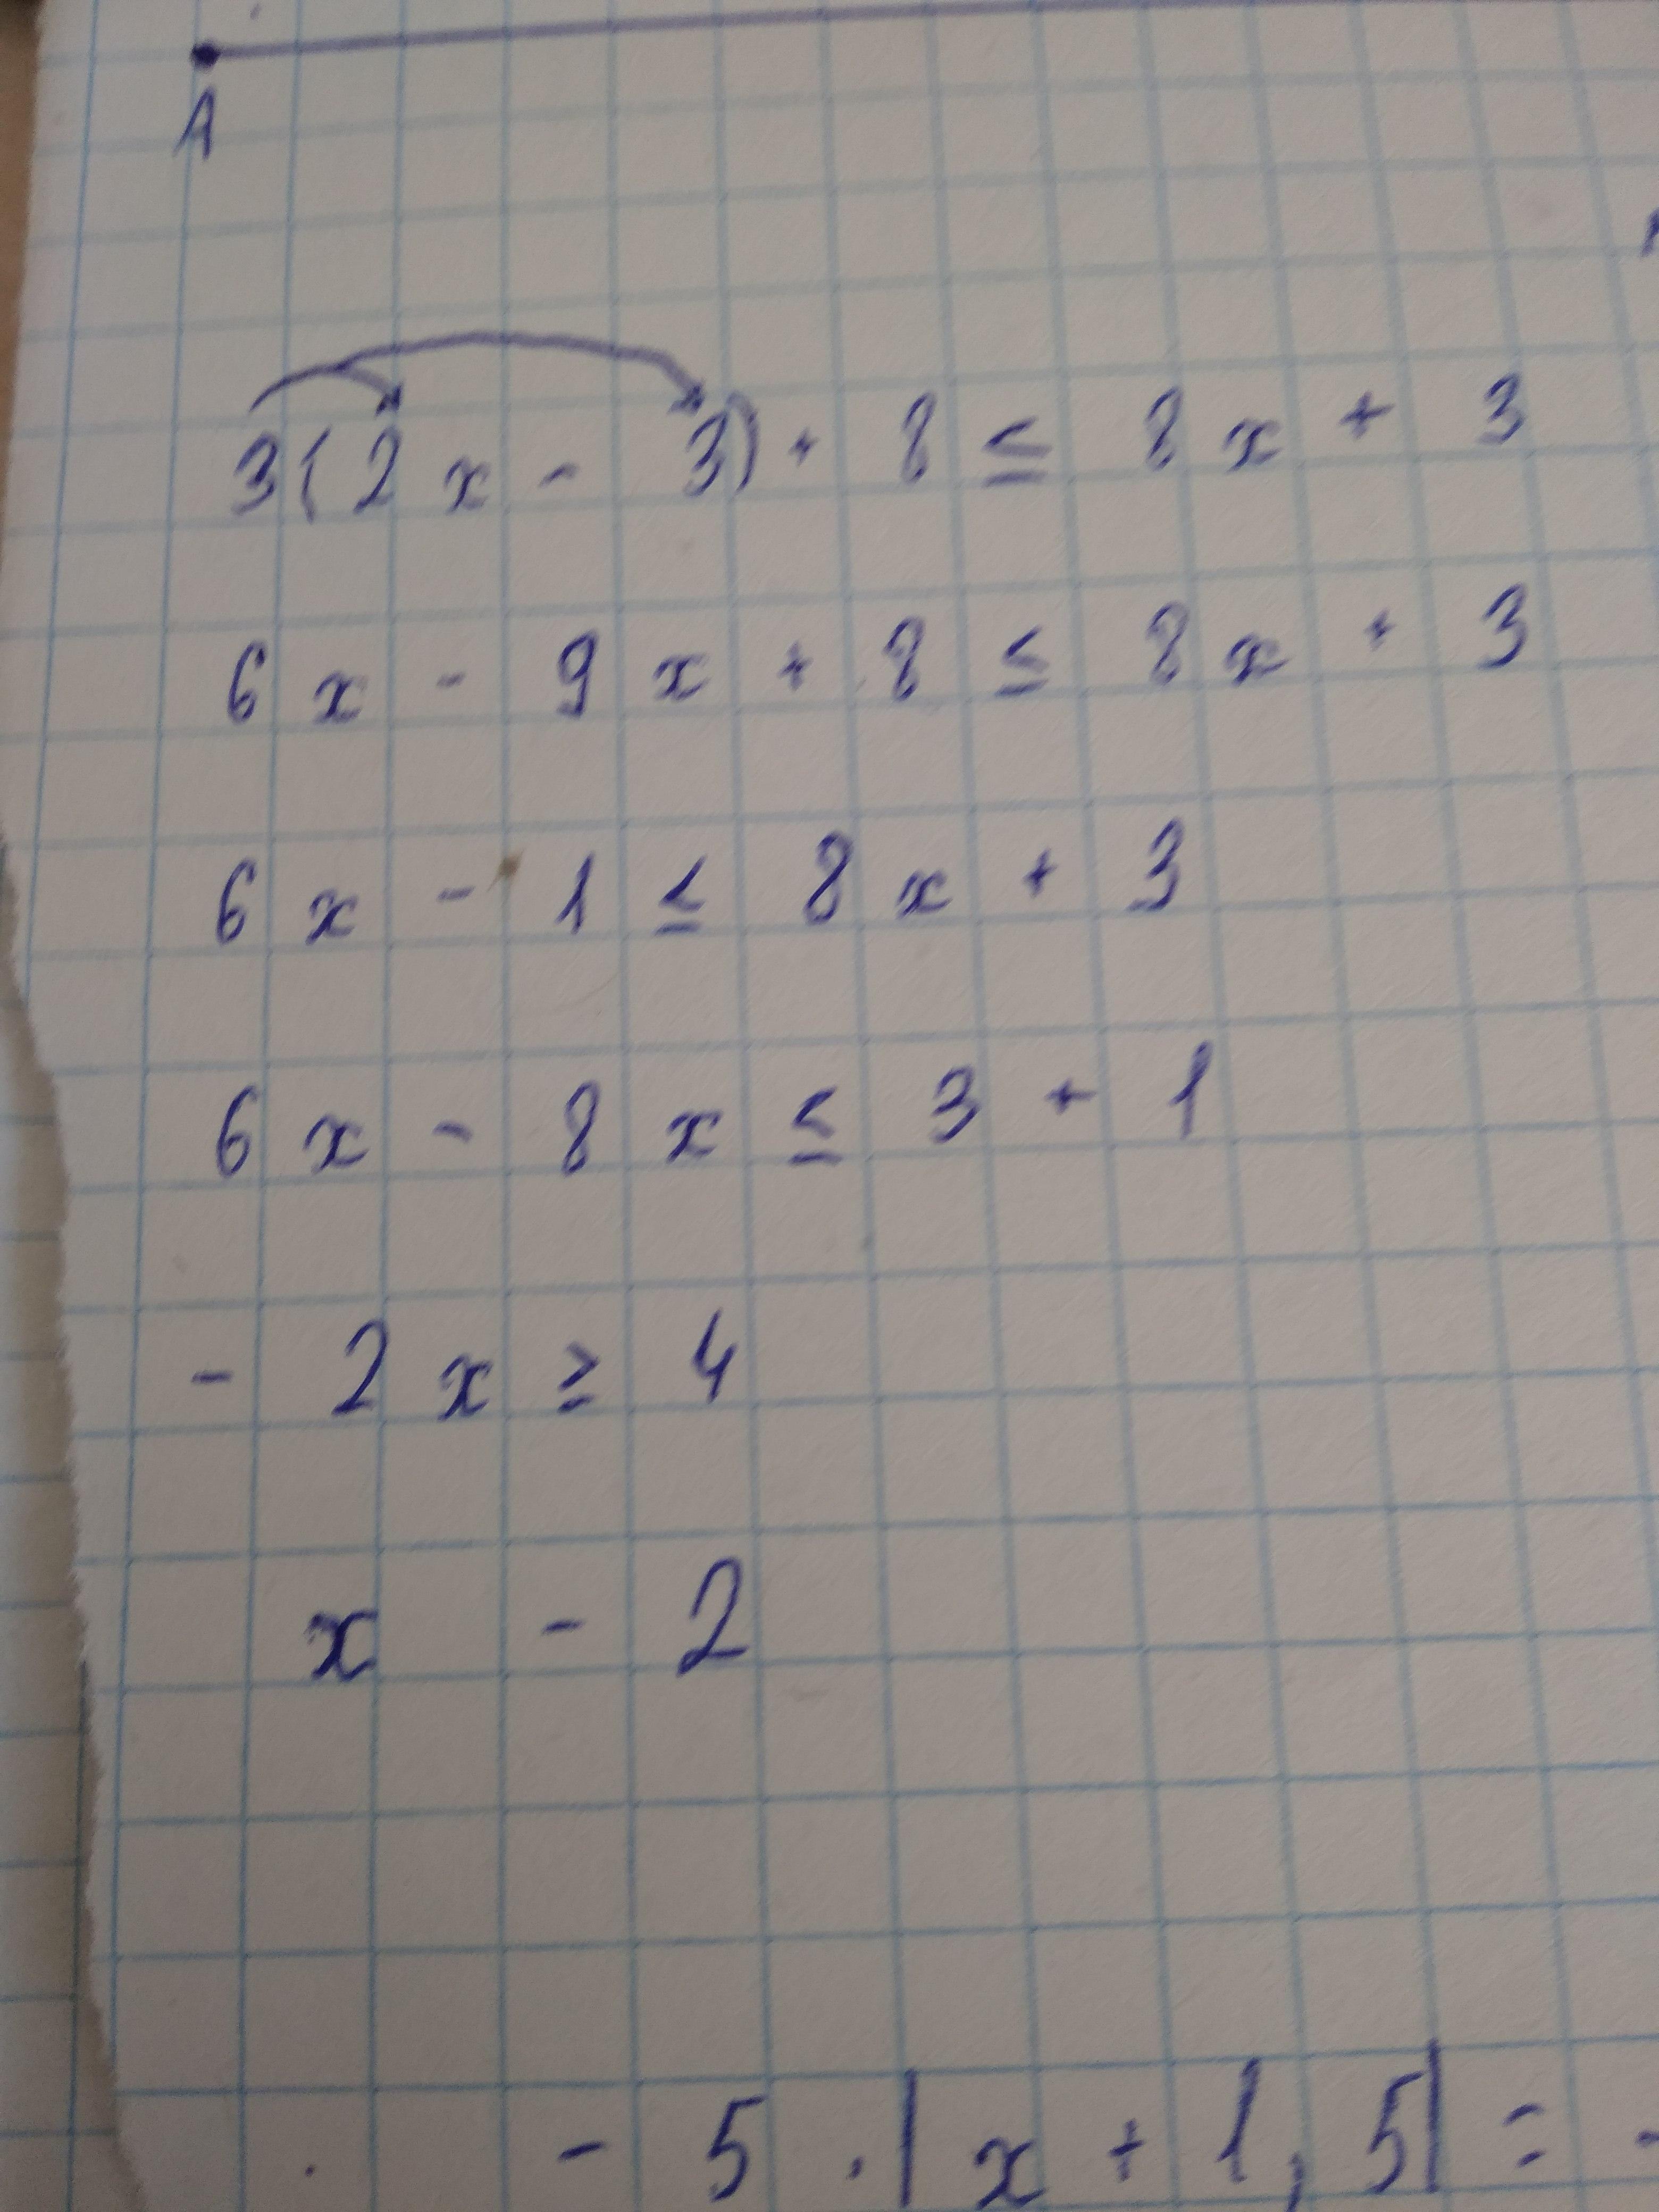 A
3(2x - 3) + 8 ≤ 8x + 3
6x - 9x + 8 ≤ 8x + 3
6x - 1 ≤ 8x + 3
6x - 8x ≤ 3 + 1
- 2x ≥ 4
x - 2
- 5 . |x + 1,5| =